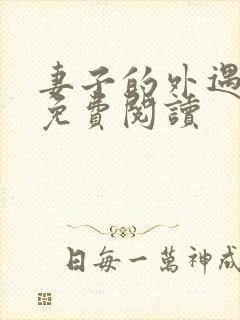 妻子的外遇
免費閱讀
日每一萬神成